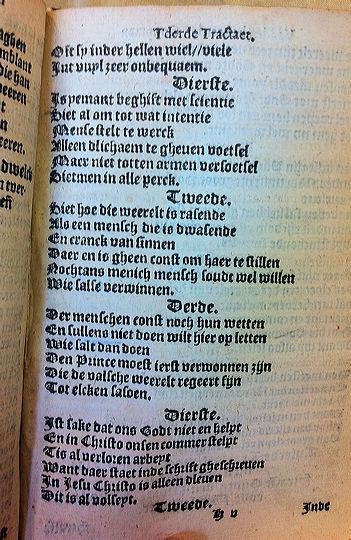 Tderde Tractaet.
Oft sy inder hellen viel//viele
Int vuyl zeer onbequaem.
Dierste.
Is yemant beghift met scientie
Siet al om tot wat intentie
Mense stelt te werck
Alleen dlichaem te gheven voetsel
Maer niet totten armen versoetsel
Sietmen in alle perck.
Tweede.
Siet hoe die weerelt is rasende
Als een mensch die is dwasende
En cranck van sinnen
Daer en is gheen const om haer te stillen
Nochtans menich mensch soudt wel willen
Wie salse verwinnen.
Derde.
Der menschen const noch hun wetten
En sullens niet doen wilt hier op letten
Wie salt dan doen
Den Prince moest ierst verwonnen zijn
Die de valsche weerelt regeert fijn
Tot elcken saisoen.
Dierste.
Ist sake dat ons Godt niet en helpt
En in Christo onsen commer stelpt
Tis al verloren arbeyt
Want daer staet inde schrift gheschreven
In Jesu Christo is alleen dleven
Dit is al volseyt.
Tweede.
H v
Inde
aghen
mblant
die han
beeren
eren.
dwelck